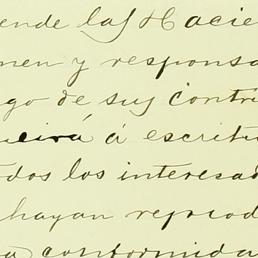 ende las Hacie
nen y responsa
go de sus contri
á escritu
odos los interesad
hayan reprod
a conformida